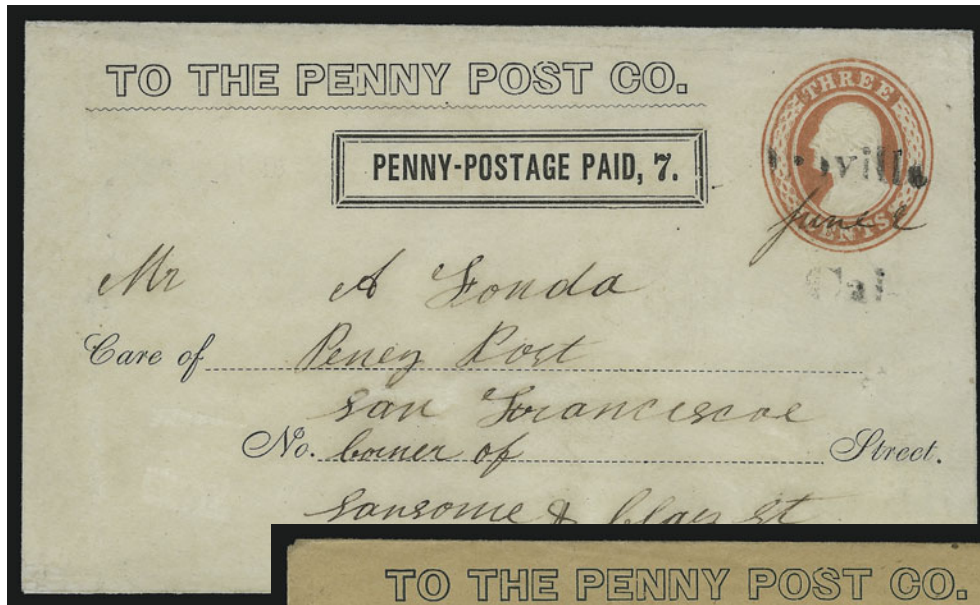 TO THE PENNY POST CO.
THREE
CENTS
PENNY-POSTAGE PAID, 7.
June 2
Mr A Fonda
Care of Peney Post
San Franciscoe
No. Corner of Street.
Sansome & Clay St
TO THE PENNY POST CO.